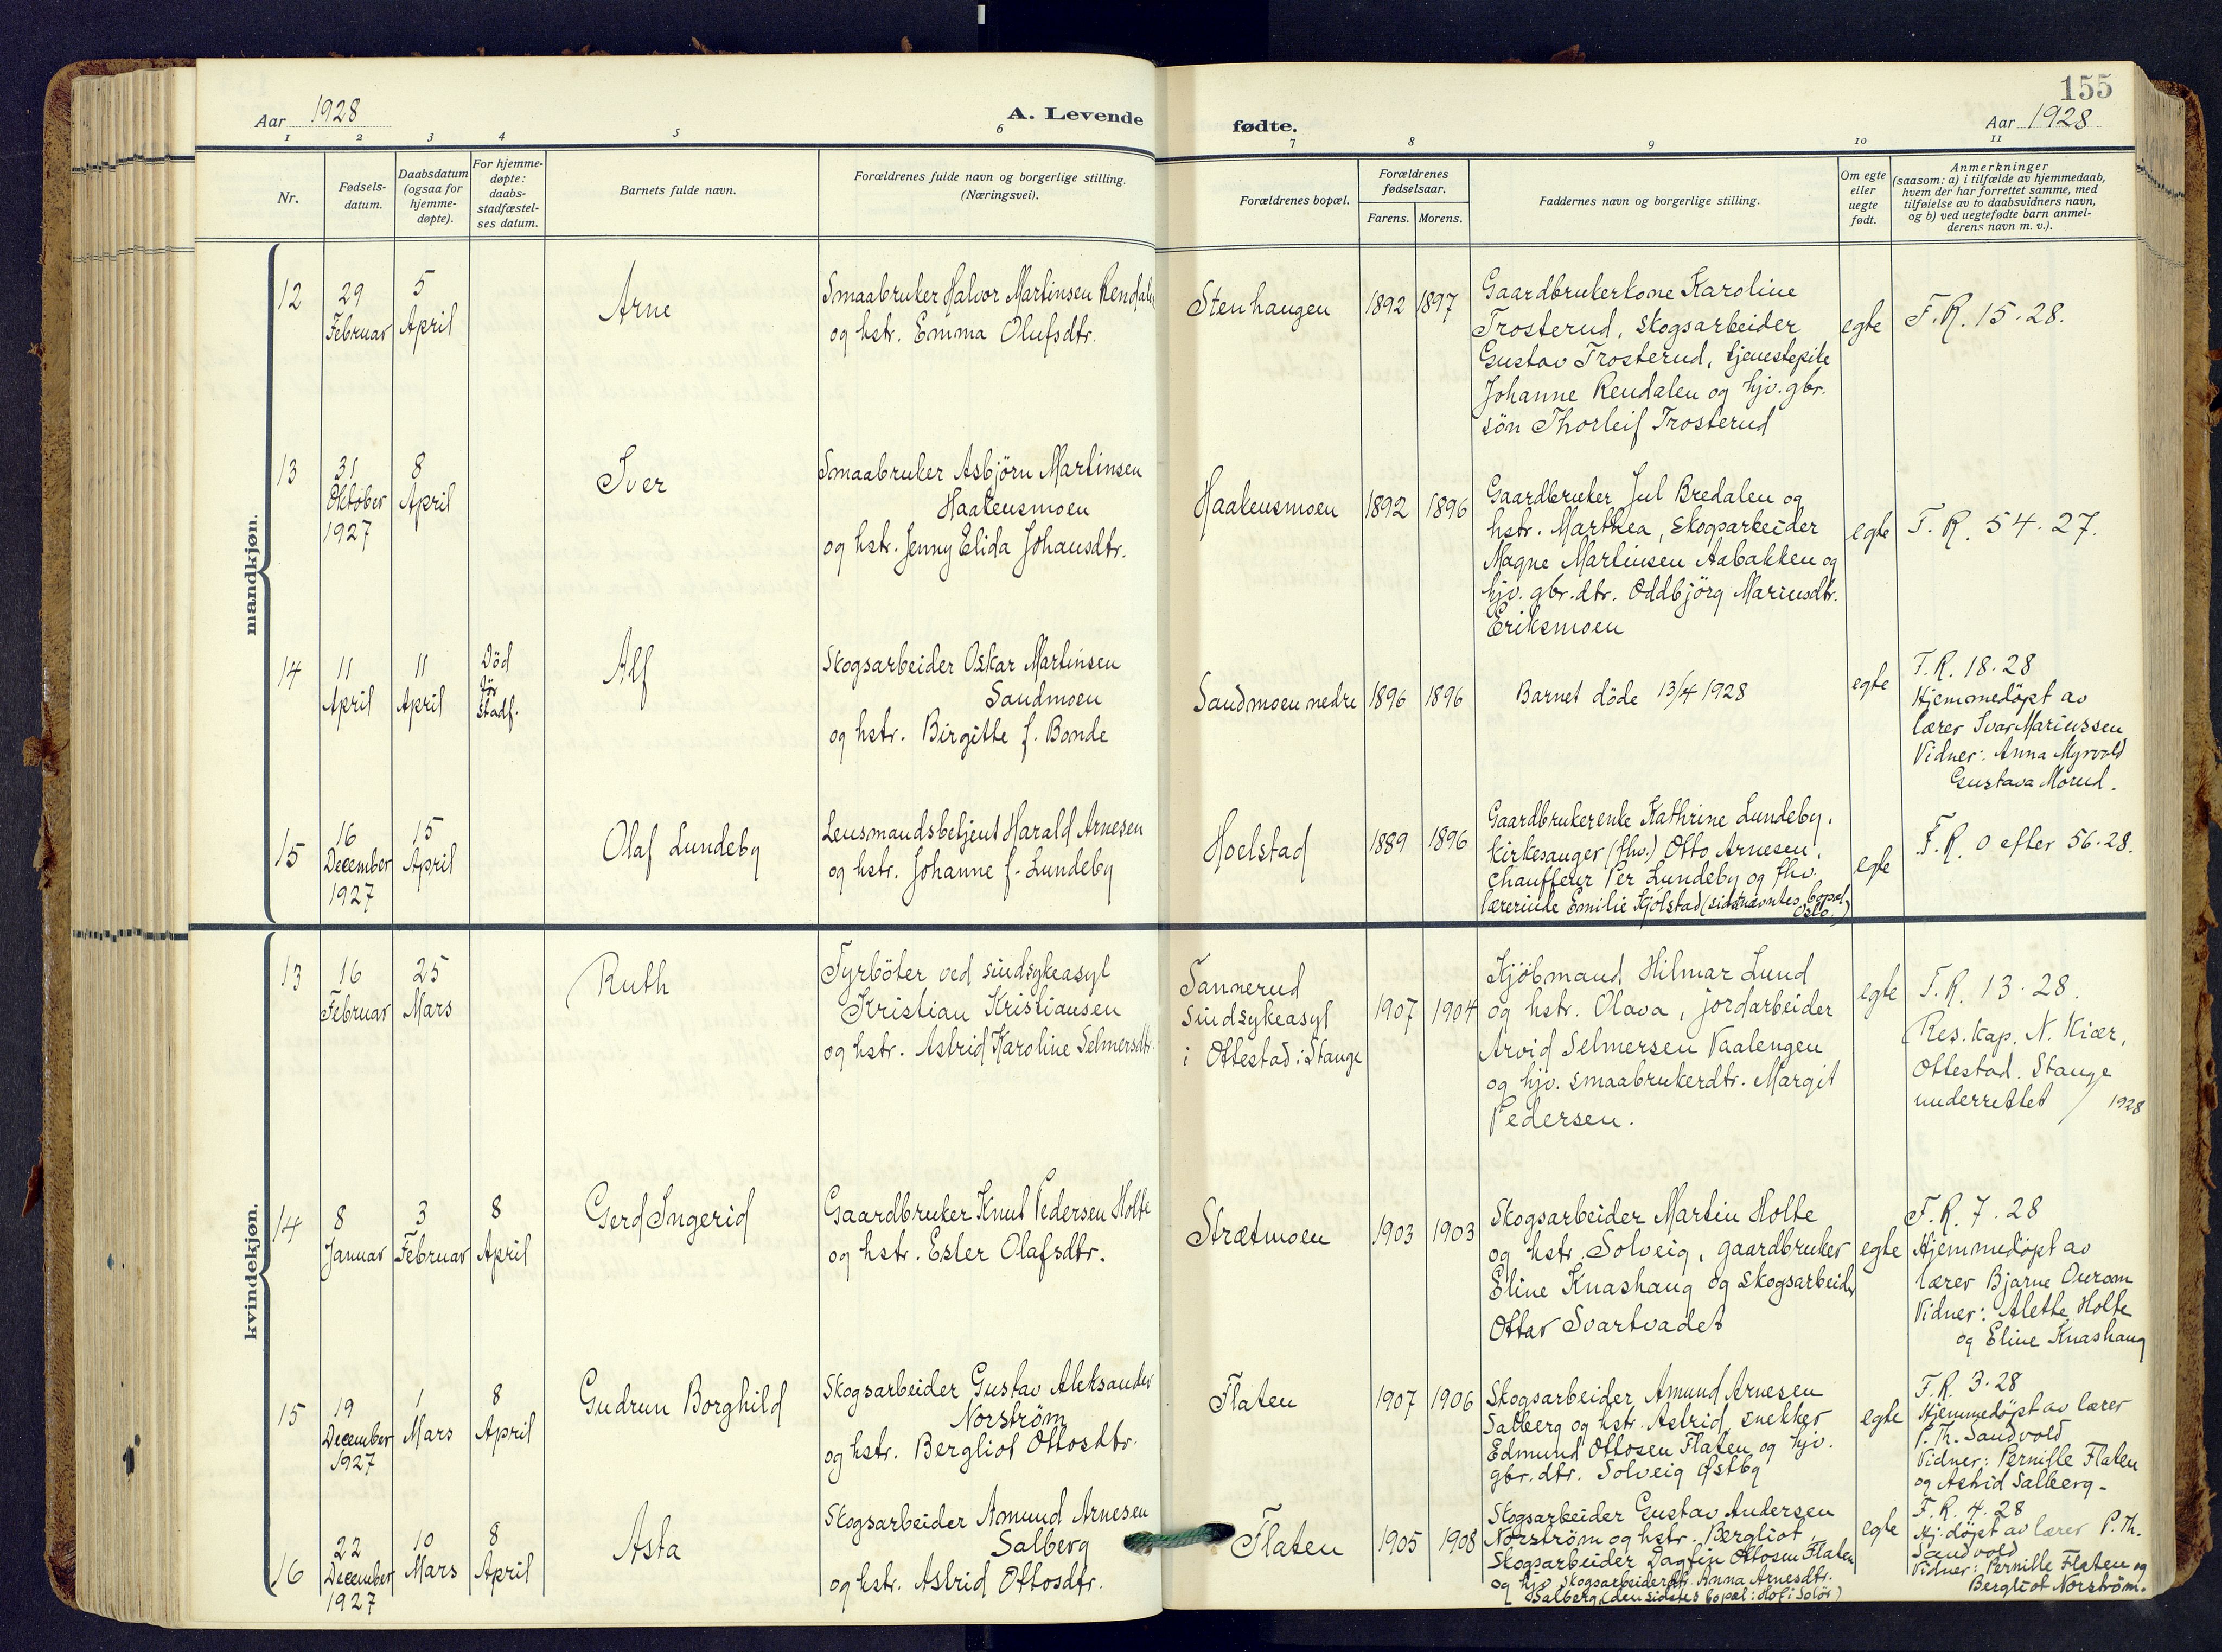 155
Aar 1928
A. Levende
fødte.
Aar 1928
1 2 3 4 5 6 7 8 9 10 11
Nr.
Fødsels-
datum.
Daabsdatum
(ogsaa for
hjemme-
døpte).
For hjemme-
døpte:
daabs-
stadfæstel-
ses datum.
Barnets fulde navn.
Forældrenes fulde navn og borgerlige stilling.
(Næringsvei).
Forældrenes bopæl.
Forældrenes
fødselsaar.
Farens. Morens.
Faddernes navn og borgerlige stilling.
Om egte
eller
uegte
født.
Anmerkninger
(saasom: a) i tilfælde av hjemmedaab,
hvem der har forrettet samme, med
tilføielse av to daabsvidners navn,
og b) ved uegtefødte barn anmel-
derens navn m. v.).
mandkjøn.
12
29
Februar
5
April
Arne
Smaabruker Halvor Martinsen Rendalen
og hstr. Emma Olufsdtr.
Stenhaugen
1892 1897
Gaardbrukerkone Karoline
Trosterud, skogsarbeider
Gustav Trosterud, tjenestepike
Johanne Rendalen og hjv. gbr.
søn Thorleif Trosterud
egte
F.R. 15.28.
13
31
Oktober
1927
8
April
Iver
Smaabruker Asbjörn Martinsen
Haakensmoen
og hstr. Jenny Elida Johansdtr.
Haakensmoen
1892 1896
Gaardbruker Jul Bredalen og
hstr. Marthea, skogsarbeider
Magne Martinsen Aabakken og
hjv. gbr.dtr. Oddbjörg Mariusdtr.
Eriksmoen
egte
F.R. 54.27.
14
11
April
11
April
Död
för
stadf.
Alf
Skogsarbeider Oskar Martinsen
Sandmoen
og hstr. Birgitte f. Bonde
Sandmoen nedre
1896 1896
Barnet döde 13/4 1928
egte
F.R. 18.28
Hjemmedöpt av
lærer Ivar Mariussen
Vidner: Anna Myrvold
Gustava Morud.
15
16
December
1927
15
April
Olaf Lundeby
Lensmandsbetjent Harald Arnesen
og hstr. Johanne f. Lundeby
Hoelstad
1889 1896
Gaardbrukerenke Kathrine Lundeby,
kirkesanger (fhv.) Otto Arnesen,
chauffeur Per Lundeby og fhv.
lærerinde Emilie Kjölstad (sidstnævntes bopæl
Oslo.)
egte
F.R. 0 efter 56.28.
kvindekjøn.
13
16
Februar
25
Mars
Ruth
Fyrböter ved sindsykeasyl
Kristian Kristiansen
og hstr. Astrid Karoline Selmersdtr.
Sannerud
Sindsykeasyl
i Ottestad i Stange
1907 1904
Kjöbmand Hilmar Lund
og hstr. Olava, jordarbeider
Arvid Selmersen Vaalengen
og hjv. smaabrukerdtr. Margit
Pedersen.
egte
F.R. 13.28.
Res. kap. N. Kiær,
Ottestad. Stange
underrettet / 1928
14
8
Januar
3
Februar
8
April
Gerd Ingerid
Gaardbruker Knut Pedersen Holte
og hstr. Ester Olafsdtr.
Strætmoen
1903 1903
Skogsarbeider Martin Holte
og hstr. Solveig, gaardbruker
Eline Knashaug og skogsarbeider
Ottar Svartvadet
egte
F.R. 7.28
Hjemmedöpt av
lærer Bjarne
Vidner: Alette Holte
og Eline Knashaug
15
19
December
1927
1
Mars
8
April
Gudrun Borghild
Skogsarbeider Gustav Aleksander
Norström
og hstr. Bergliot Ottosdtr.
Flaten
1907 1906
Skogsarbeider Amund Arnesen
Salberg og hstr. Astrid, snekker
Edmund Ottosen Flaten og hjv.
gbr.dtr. Solveig Østby
egte
F.R. 3.28
Hjemmedöpt av lærer
P. Th. Sandvold
Vidner: Pernille Flaten
og Astrid Salberg.
16
22
December
1927
10
Mars
8
April
Asta
Skogsarbeider Amund Arnesen
Salberg
og hstr. Astrid Ottosdtr.
Flaten
1905 1908
Skogsarbeider Gustav Andersen
Norström og hstr. Bergliot,
Skogsarbeider Dagfin Ottosen Flaten
og hjv. skogsarbeiderdtr. Anna Arnesdtr.
Salberg (den sidstes bopæl: Hof i Solör)
egte
F.R. 4.28
Hj.döpt av lærer P. Th.
Sandvold
Vidner: Pernille Flaten og
Bergliot Norström.